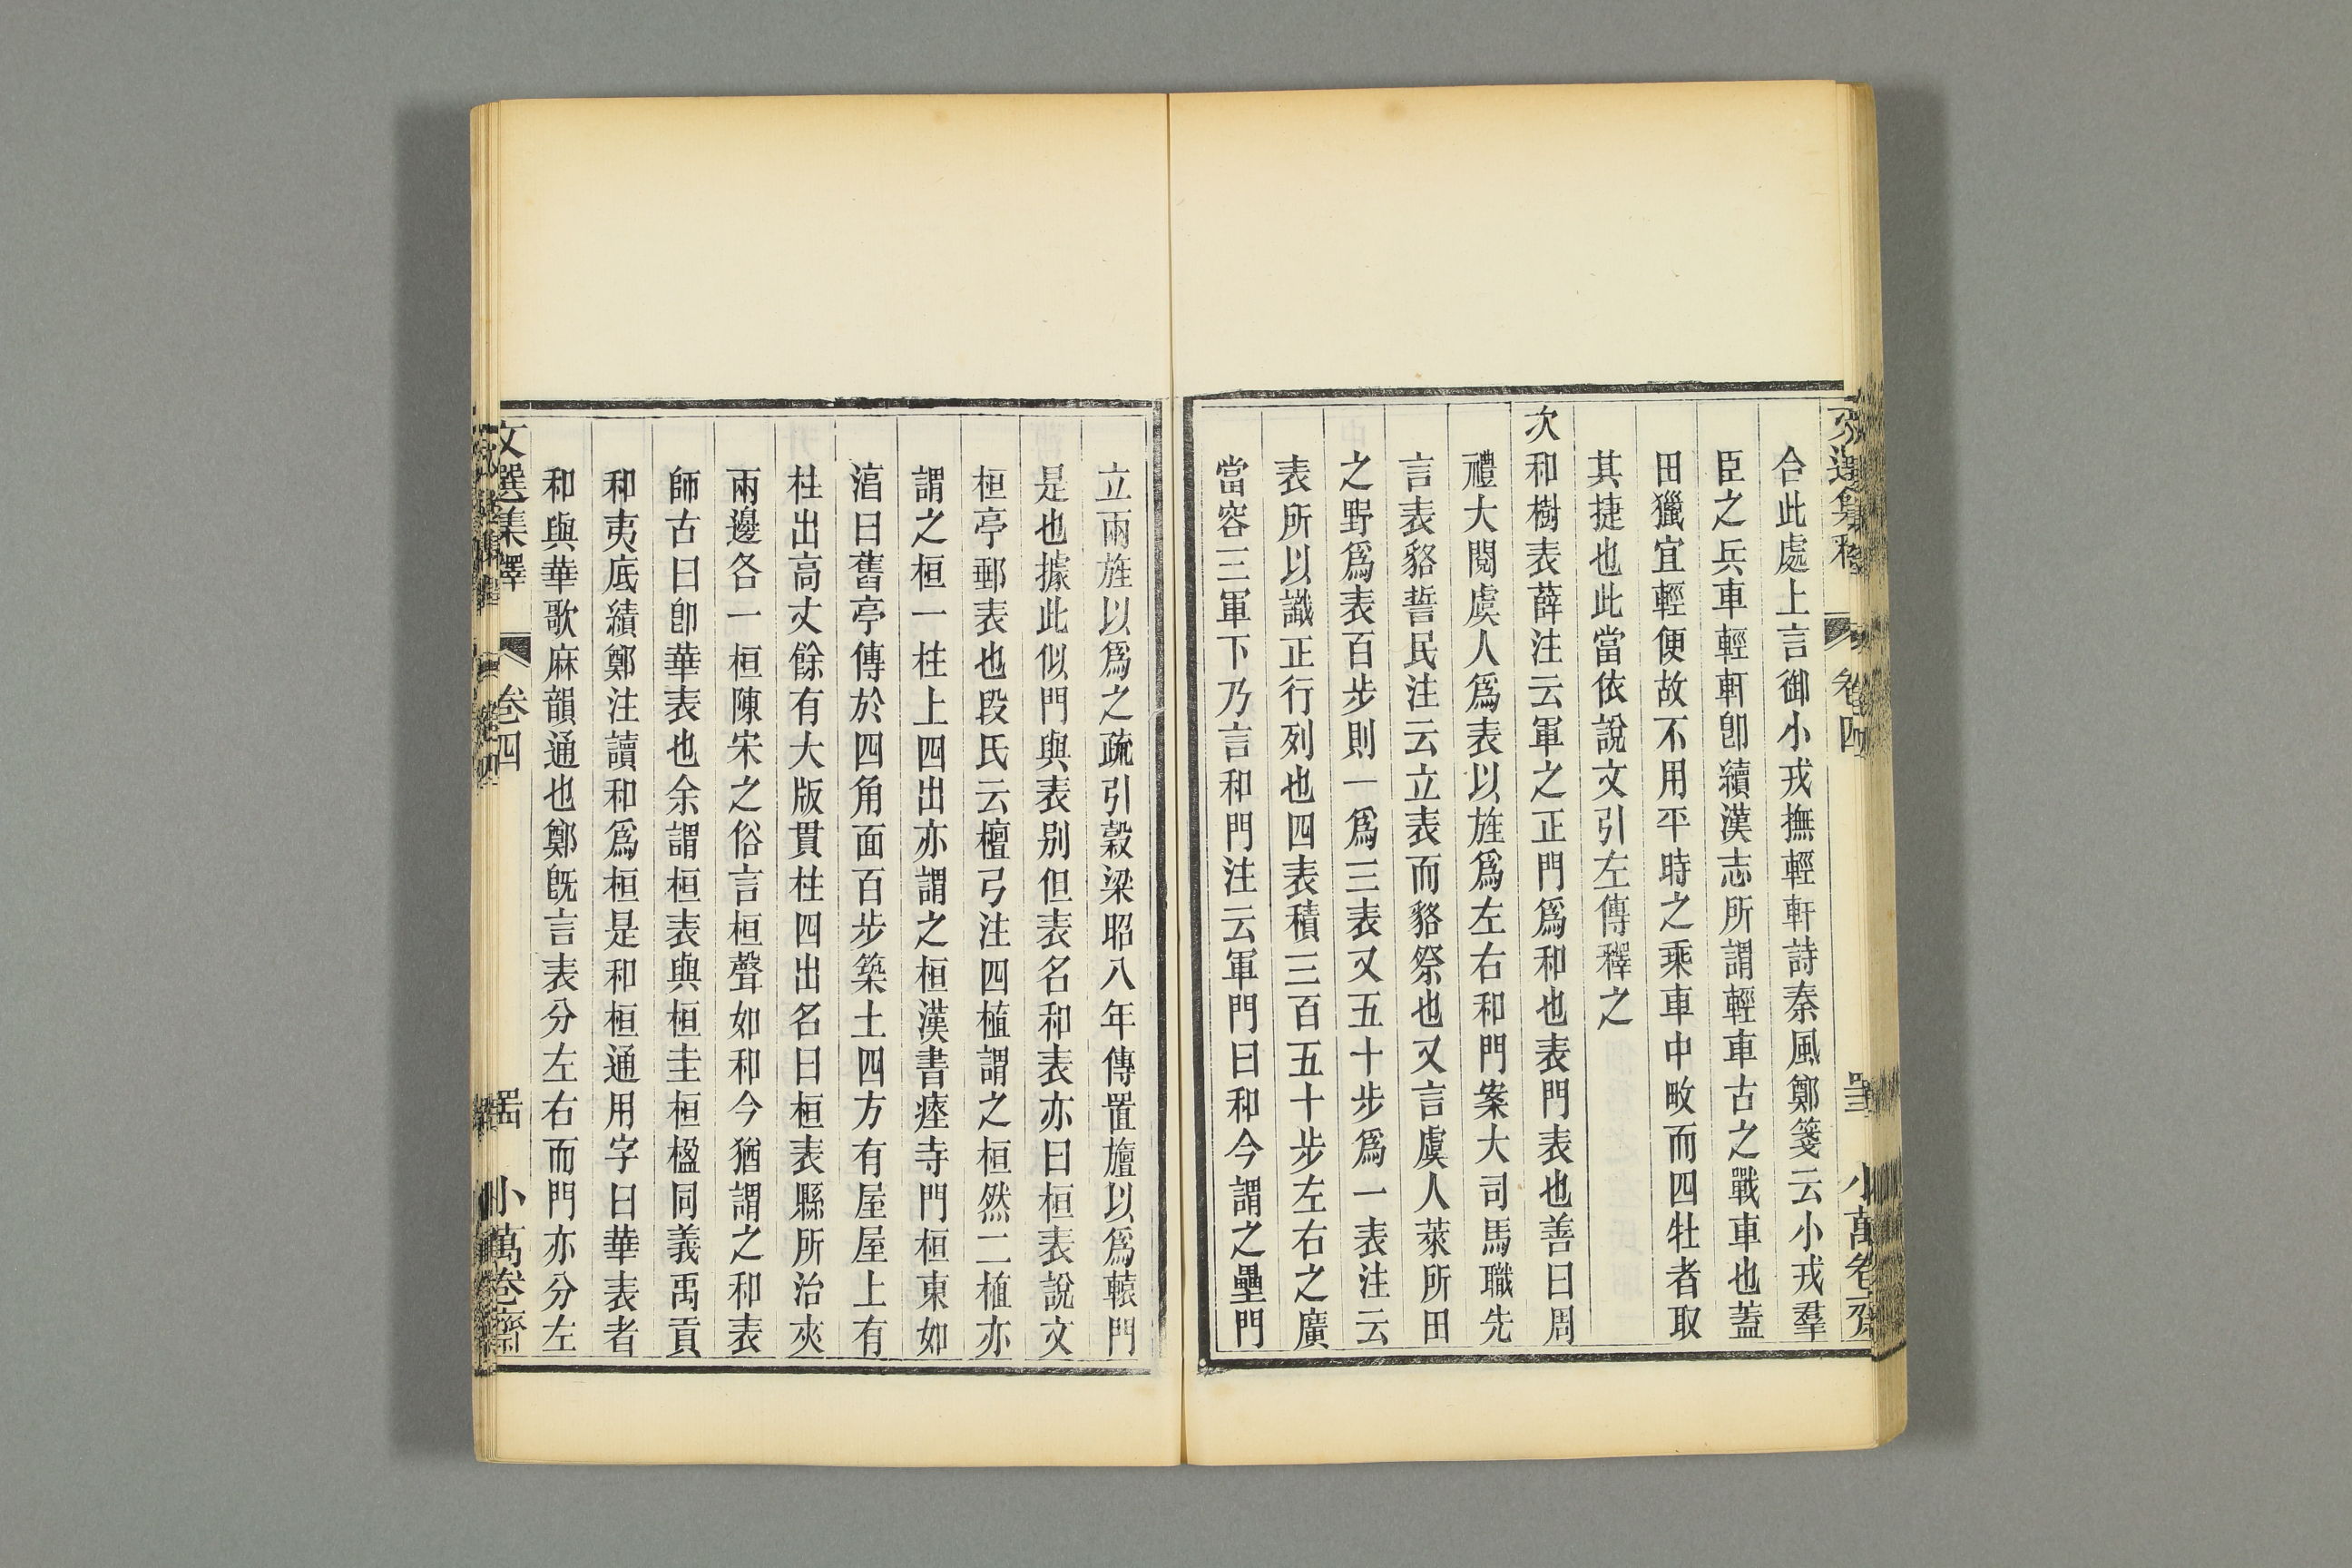 合此處上言御小戎撫輕軒詩秦風鄭箋云小戎羣
臣之兵車輕軒卽續漢志所謂輕車古之戰車也蓋
田獵宜輕便故不用平時之乘車中畋而四牡者取
其捷也此當依說文引左傳釋之
次和樹表薛注云軍之正門爲和也表門表也善曰周
禮大閱虞人爲表以旌爲左右和門案大司馬職先
言表貉誓民注云立表而貉祭也又言虞人萊所田
之野爲表百步則一爲三表又五十步爲一表注云
表所以識正行列也四表積三百五十步左右之廣
當容三軍下乃言和門注云軍門曰和今謂之壘門
立兩旌以爲之疏引穀梁昭八年傳置旜以爲轅門
是也據此似門與表別但表名和表亦曰桓表說文
桓亭郵表也段氏云檀弓注四植謂之桓然二植亦
謂之桓一柱上四出亦謂之桓漢書瘞寺門桓東如
淳曰舊亭傳於四角面百步築土四方有屋屋上有
柱出高丈餘有大版貫柱四出名曰桓表縣所治夾
兩邊各一桓陳宋之俗言桓聲如和今猶謂之和表
師古曰卽華表也余謂桓表與桓圭桓楹同義禹貢
和夷底績鄭注讀和爲桓是和桓通用字曰華表者
和與華歌麻韻通也鄭旣言表分左右而門亦分左
文選集釋 卷四 小萬卷齋